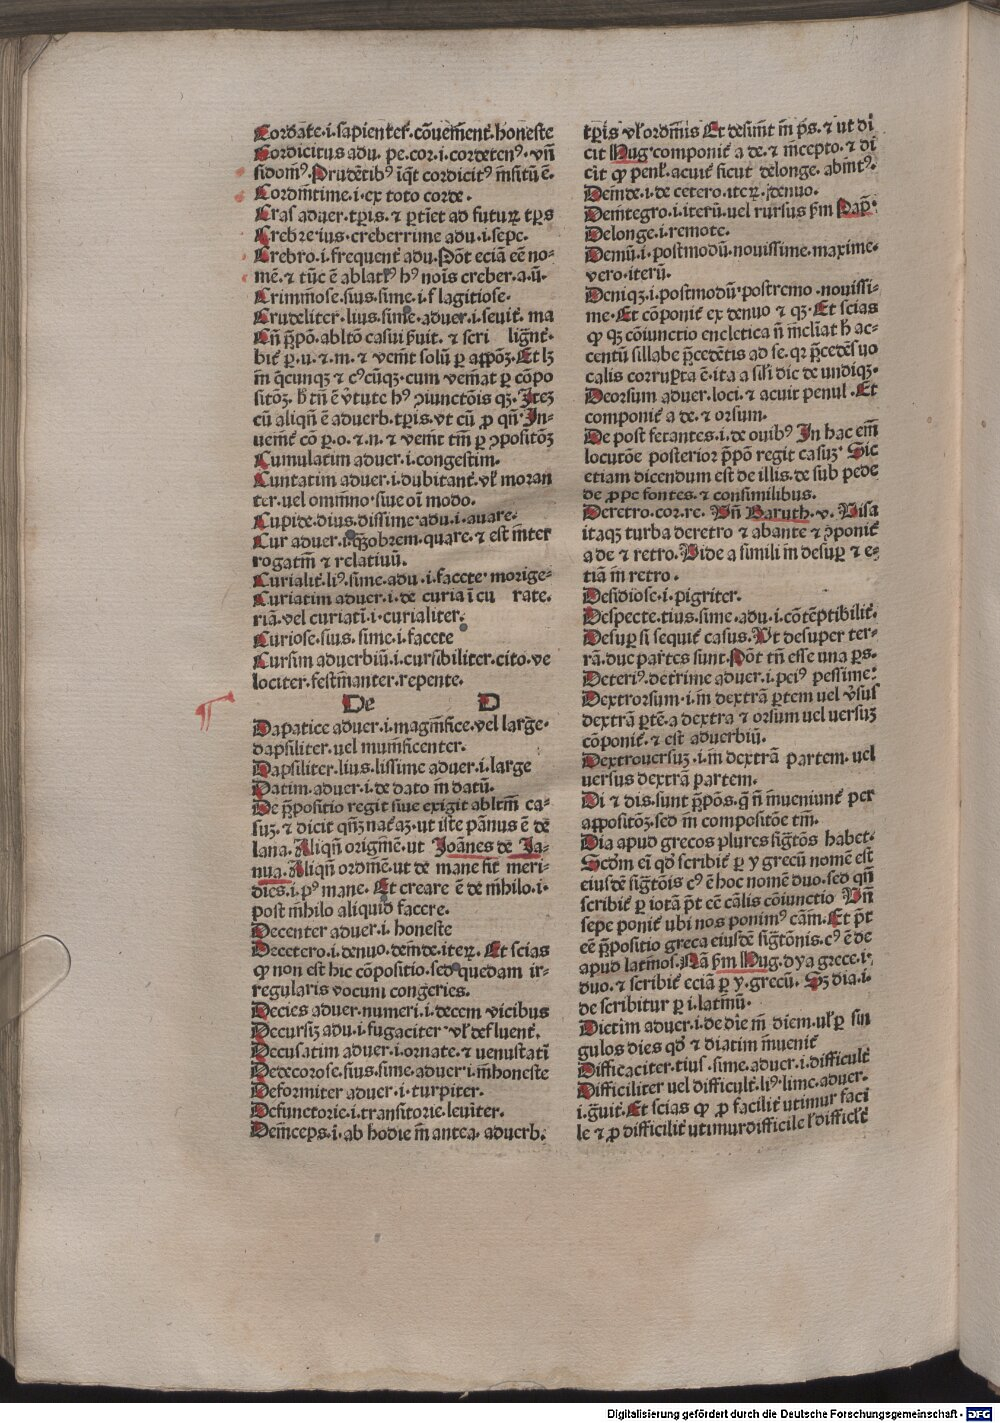 Cordate.i.sapienter.cõueniẽnt̃.honeste
Cordicitus adu. pe.cor.i.cordeten⁹.vñ
sidom⁹.Prudẽtib⁹ iq̃t cordicit⁹ insitũ ẽ.
Cordintime.i.ex toto corde.
Cras aduer.tp̃is.⁊ p̱tiet ad futuꝝ tp̃s
Crebre ius.creberrime adu.i.sepe.
Crebro.i.frequent̃ adu.Põt eciã eẽ no-
mẽ.⁊ tũc ẽ ablat⁹ h⁹ nois creber.a.ũ.
Criminose.sius.sime.i.flagitiose.
Crudeliter.lius.sime.aduer.i.seuit̃. ma
Cũ p̃põ.abltõ casui ẜuit. ⁊ scri lignt̃.
bit̃ ꝑ.u.⁊.m.⁊ venit solũ ꝑ appõꝫ.Et lꝫ
in q̃cunqꝫ ⁊ c⁹cũqꝫ.cum veniat ꝑ cõpo
sitõꝫ. h̃ tñ ẽ v̓tute h⁹ ↄiunctõis qꝫ. Iteꝫ
cũ aliqñ ẽ aduerb.tp̃is.vt cũ ꝓ qñ.In-
uenit̃ cõ ꝑ.o.⁊.n.⁊ venit tm̃ ꝑ ↄpositõꝫ
Cumulatim aduer.i.congestim.
Cuntatim aduer.i.dubitant̃.vl̃ moran
ter.uel omnino.siue oi modo.
Cupide.dius.dissime.adu.i.auare.
Cur aduer.i.qꝫobrem.quare.⁊ est inter
rogatiũ ⁊ relatiuũ.
Curialit̃.li⁹.sime.adu.i.facete.morige-
Curiatim aduer.i.de curia ĩ cu rate.
riã.vel curiati.i.curialiter.
Curiose.sius.sime.i.facete
Cursim aduerbiũ.i.cursibiliter.cito.ve
lociter.festinanter.repente.
De D
Dapatice aduer.i.magnifice.vel large.
dapsiliter.uel munificenter.
Dapsiliter.lius.lissime aduer.i.large
Datim.aduer.i.de dato in datũ.
De p̃positio regit siue exigit abltiũ ca-
suꝫ.⁊ dicit qñꝫ nat̃aꝫ.ut iste pãnus ẽ de
lana.Aliqñ originẽ.ut Joãnes de Ja-
nua.Aliqñ ordinẽ.ut de mane fit̃ meri-
dies.i.p⁹ mane. Et creare ẽ de nihilo.i.
post nihilo aliquid facere.
Decenter aduer.i.honeste
Decetero.i.denuo.deinde.iteꝝ. Et scias
ꝙ non est hic cõpositio.sed quedam ir-
regularis vocum congeries.
Decies aduer.numeri.i.decem vicibus
Decursiꝫ adu.i.fugaciter vl̃ defluent̃.
Decusatim aduer.i.ornate.⁊ uenustati
Dedecorose.sius.sime.aduer.i.inhoneste
Deformiter aduer.i.turpiter.
Defunctorie.i.transitorie.leuiter.
Deinceps.i.ab hodie in antea.aduerb.
tp̃is vl̃ ordinis Et desinit in p̃s.⁊ ut di
cit Hug.componit̃ a de.⁊ incepto.⁊ di
cit ꝙ penl̃.acuit̃ sicut delonge.abint⁹.
Deinde.i.de cetero.iteꝝ.denuo.
Deintegro.i.iterũ.uel rursus ẜm Pap̃.
Delonge.i.remote.
Demũ.i.postmodũ.nouissime.maxime.
vero.iterũ.
Deniqꝫ.i.postmodũ.postremo.nouissi-
me.Et cõponit̃ ex denuo ⁊ qꝫ.Et scias
ꝙ qꝫ cõiunctio encletica ñ inclĩat h̃ ac-
centũ sillabe p̃cedẽtis ad se.qꝛ p̃cedẽs uo
calis corrupta ẽ.ita a sil̃i dic de undiqꝫ.
Deorsum aduer.loci.⁊ acuit penul.Et
componit̃ a de.⁊ orsum.
De post fetantes.i.de ouib⁹ In hac em̃
locutõe posterior p̃põ regit casuꝫ. Sic
etiam dicendum est de illis.de sub pede
de ꝓpe fontes.⁊ consimilibus.
Deretro.cor.re. Vñ Baruth.v. Visa
itaqꝫ turba deretro ⁊ abante ⁊ ↄponit̃
a de ⁊ retro.Vide a simili in desuꝑ ⁊ e-
tiã in retro.
Desidiose.i.pigriter.
Despecte.tius.sime.adu.i.cõtẽptibilit̃.
Desuꝑ si sequit̃ casus.Vt desuper ter-
rã.due partes sunt.Põt tñ esse una ꝑs.
Deteri⁹.detrime aduer.i.pei⁹ pessime.
Dextrorsum.i.in dextrã ꝑtem uel v̓sus
dextrã ꝑtẽ.a dextra ⁊ orsum uel uersuꝫ
cõponit̃.⁊ est aduerbiũ.
Dextrouersuꝫ.i.in dextrã partem.uel
uersus dextrã partem.
Di ⁊ dis.sunt p̃põs.q̃ ñ inueniunt̃ per
appositõꝫ.sed in compositõe tm̃.
Dia apud grecos plures sig̃tõs habet.
Scdm ei qd̓ scribit̃ ꝑ y grecũ nomẽ est
eiusdẽ sig̃tõis c⁹ ẽ hoc nomẽ duo.sed qñ
scribit̃ ꝑ iotã p̃t eẽ cãlis cõiunctio Vñ
sepe ponit̃ ubi nos ponim⁹ cãm.Et p̃t
eẽ p̃positio greca eiusdẽ sig̃tõnis.c⁹ ẽ de
apud latinos.Nã ẜm Hug.dya grece.i.
duo.⁊ scribit̃ eciã ꝑ y.grecũ. Sꝫ dia.i.
de scribitur ꝑ i.latinũ.
Dictim aduer.i.de die in diem.ul̃ꝑ sin
gulos dies qd̓ ⁊ diatim inuenit̃
Difficaciter.tius.sime.aduer.i.difficult̃
Difficiliter uel difficult̃.li⁹.lime.aduer.
i.g̃uit̃.Et scias ꝙ ꝓ facilit̃ utimur faci
le ⁊ ꝓ difficilit̃ utimur difficile l̃ difficl̃t
Digitalisierung gefördert durch die Deutsche Forschungsgemeinschaft - DFG